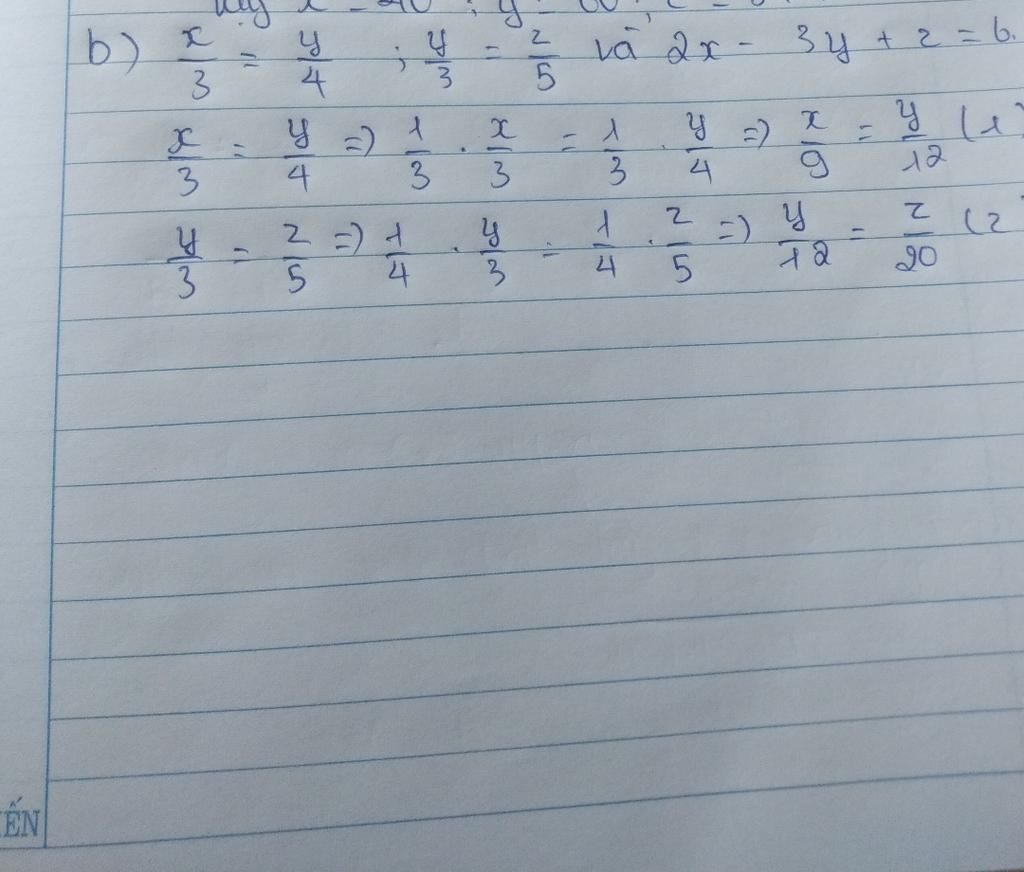 b) x/3 = y/4 ; y/3 = z/5 và 2x - 3y + z = 6.
x/3 = y/4 => 1/3 . x/3 = 1/3 . y/4 => x/9 = y/12 (1)
y/3 = z/5 => 1/4 . y/3 = 1/4 . z/5 => y/12 = z/20 (2
ẾN